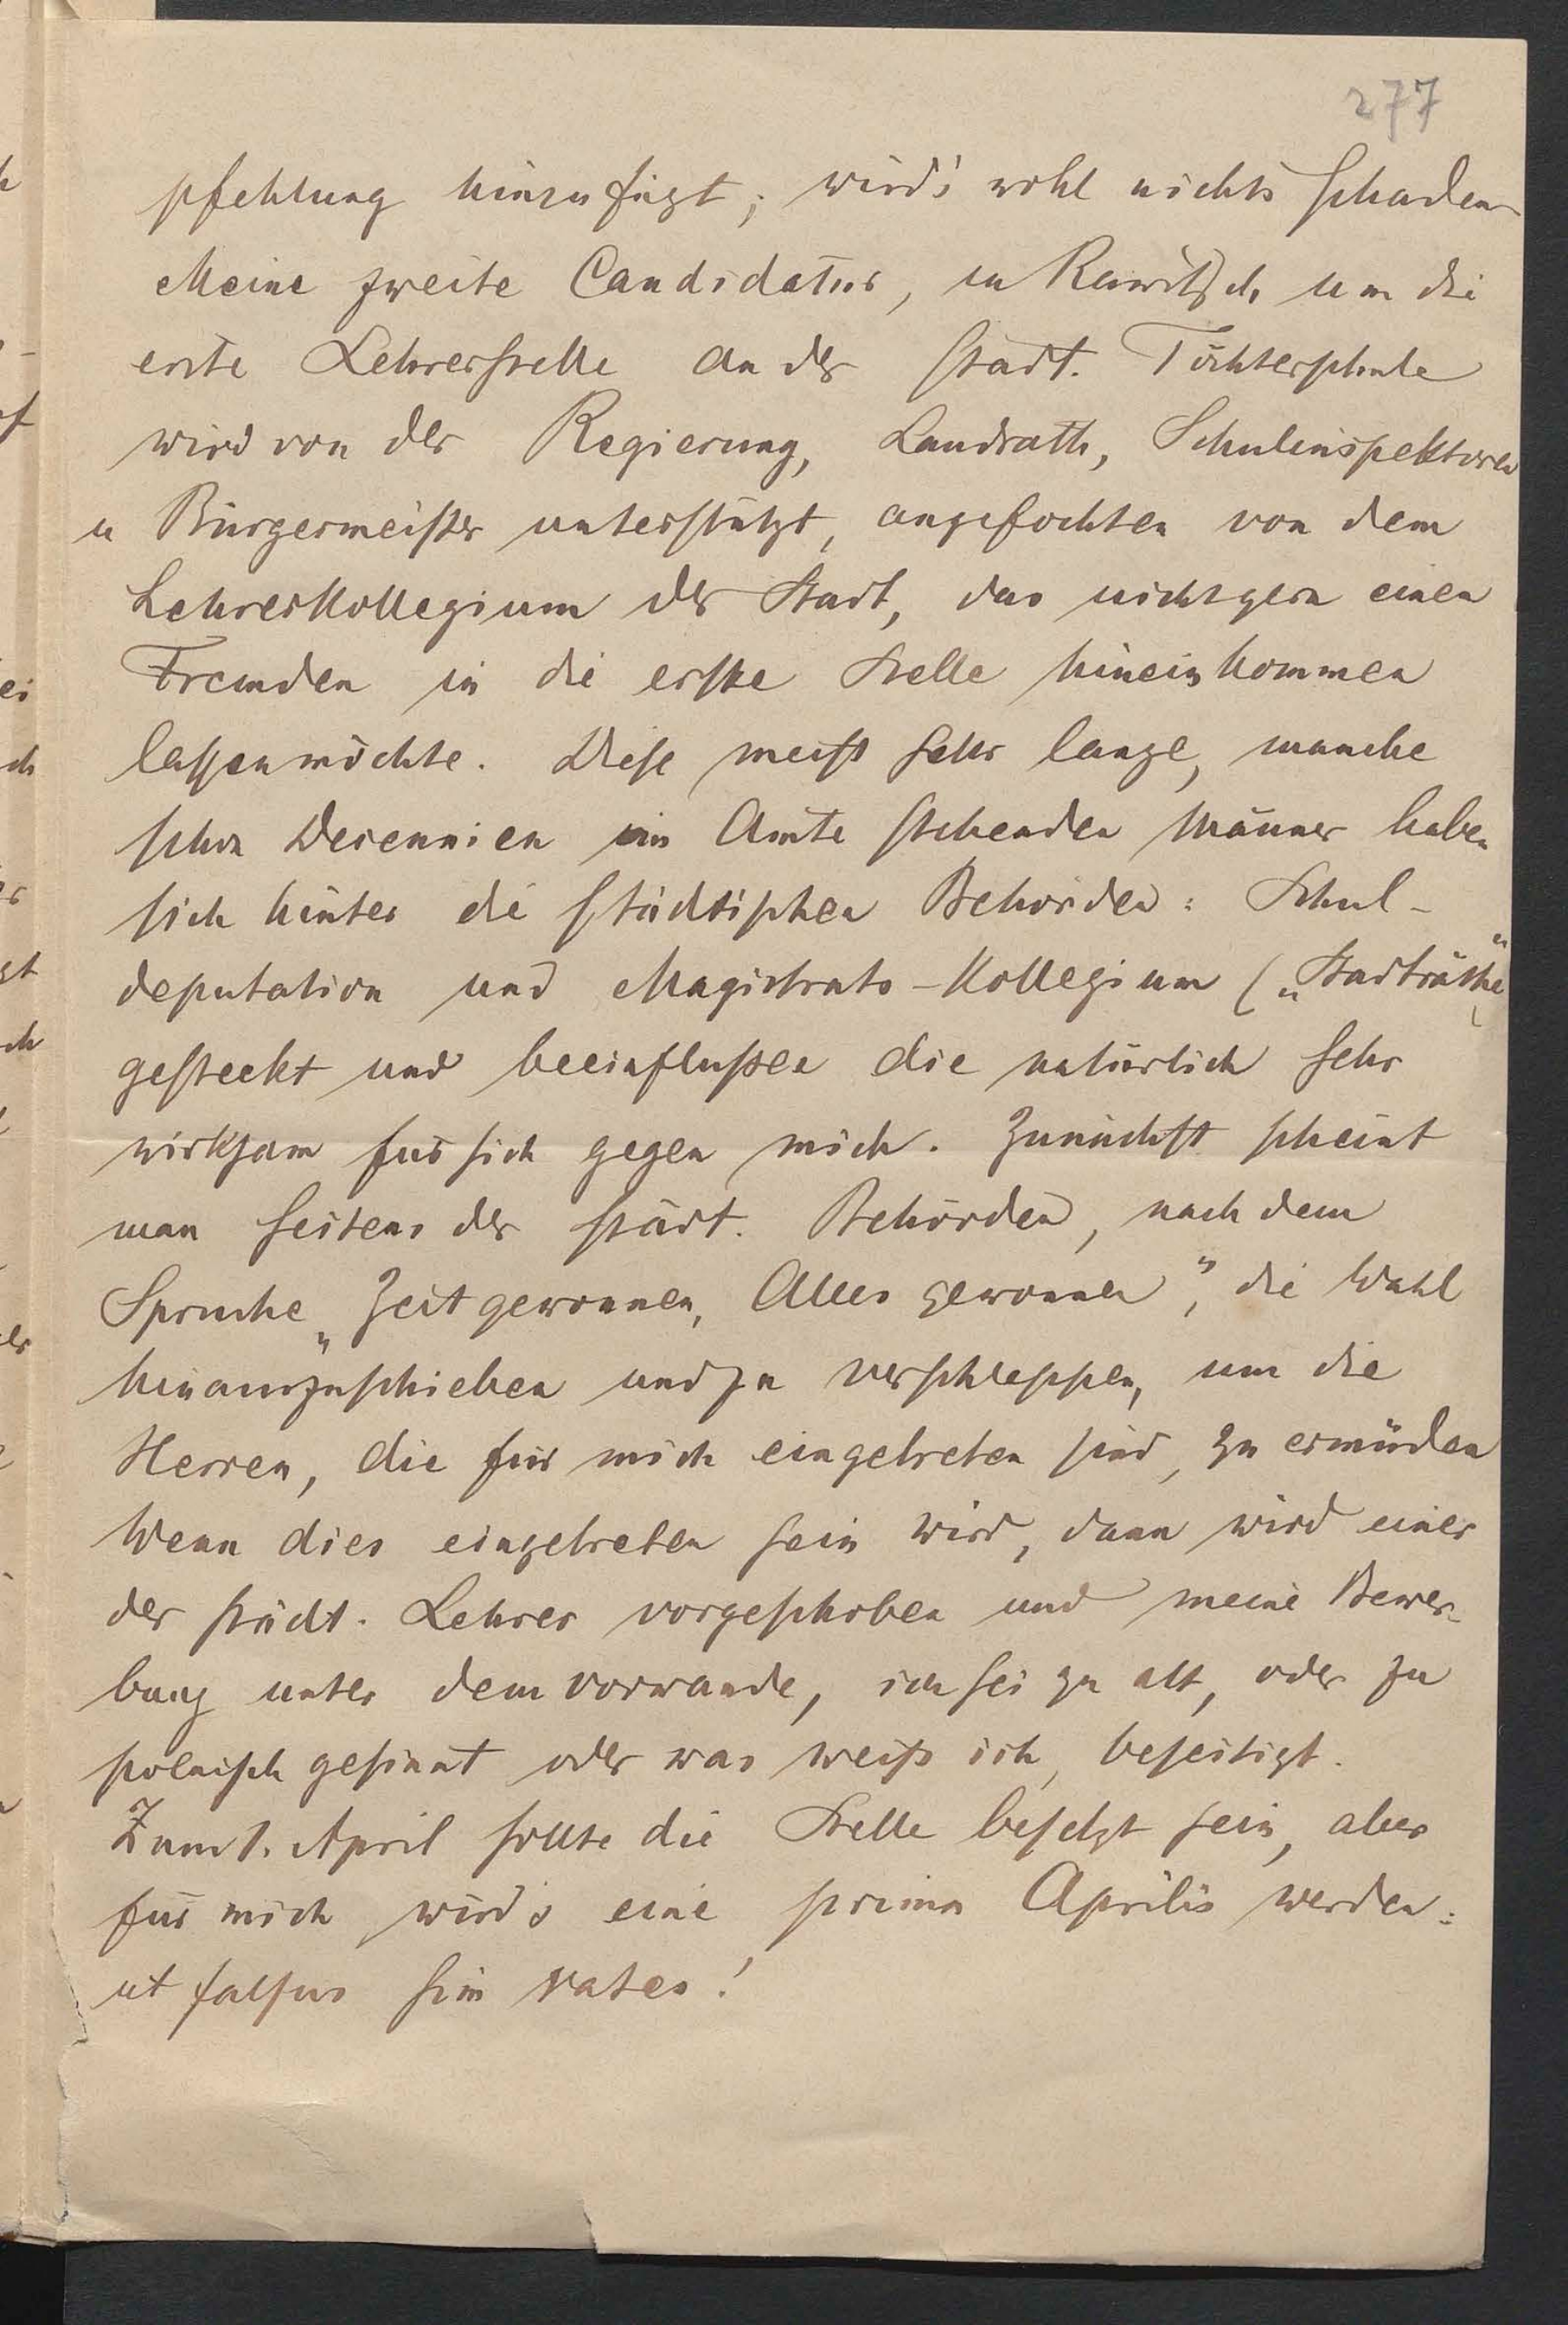 277
pfehlung hinzufügt, wird's wohl nichts schaden
Meine zweite Candidatur, in Rawitsch um die
erste Lehrerstelle an der städt. Töchterschule
wird von der Regierung, Landrath, Schulinspektoren
u Bürgermeister unterstützt, angefochten von dem
Lehrerkollegium der Stadt, das nicht gern einen
Fremden in die erste Stelle hineinkommen
lassen möchte. Diese meist sehr lange, manche
schon Decennien im Amte stehenden Männer haben
sich hinter die städtischen Behörden: Schul-
deputation und Magistrats-Kollegium („Stadträthe“)
gesteckt und beeinflußen die natürlich sehr
wirksam für sich gegen mich. Zunächst scheint
man seitens der städt. Behörden, nach dem
Spruche „Zeit gewonnen, Alles gewonnen“, die Wahl
hinauszuschieben und zu verschleppen, um die
Herren, die für mich eingetreten sind, zu ermüden
Wenn dies eingetreten sein wird, dann wird einer
der städt. Lehrer vorgeschoben und meine Bewer-
bung unter dem Vorwande, ich sei zu alt, oder zu
polnisch gesinnt oder was weiß ich, beseitigt.
Zum 1. April sollte die Stelle besetzt sein, aber
für mich wird's eine prima Aprilis werden:
ut falsus sim vates!